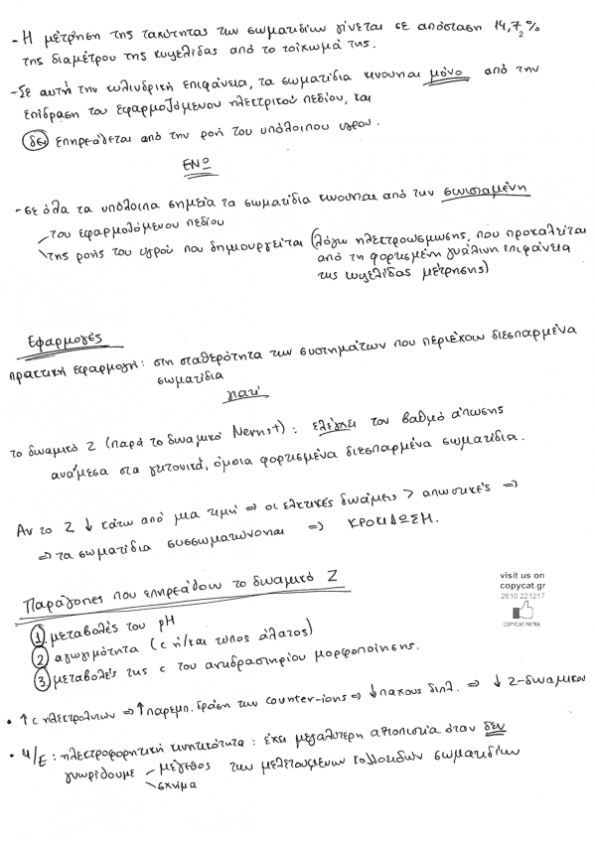 - Η μέτρηση της ταχύτητας των σωματιδίων γίνεται σε απόσταση 14,7%
της διαμέτρου της κυψελίδας από το τοίχωμά της.
- Σε αυτή την κυλινδρική επιφάνεια, τα σωματίδια κινούνται μόνο από την
επίδραση του εφαρμοζόμενου ηλεκτρικού πεδίου, και
δεν επηρεάζεται από την ροή του υπόλοιπου υγρού.
ΕΝΩ
- σε όλα τα υπόλοιπα σημεία τα σωματίδια κινούνται από την συνισταμένη
του εφαρμοζόμενου πεδίου
της ροής του υγρού που δημιουργείται (λόγω ηλεκτροώσμωσης, που προκαλείται
από τη φορτισμένη γυάλινη επιφάνεια
της κυψελίδας μέτρησης)
Εφαρμογές
πρακτική εφαρμογή: στη σταθερότητα των συστημάτων που περιέχουν διεσπαρμένα
σωματίδια
γιατί
το δυναμικό Ζ (παρά το δυναμικό Nernst): ελέγχει τον βαθμό άπωσης
ανάμεσα στα γειτονικά, όμοια φορτισμένα διεσπαρμένα σωματίδια.
Αν το Ζ ↓ κάτω από μια τιμή ⇒ οι ελκτικές δυνάμεις > απωστικές ⇒
⇒ τα σωματίδια συσσωματώνονται ⇒ ΚΡΟΚΙΔΩΣΗ.
Παράγοντες που επηρεάζουν το δυναμικό Ζ
visit us on
copycat.gr
2610 221217
COPYCAT PATRA
1 μεταβολές του pH
2 αγωγιμότητα (c ή/και τύπος άλατος)
3 μεταβολές της c του αντιδραστηρίου μορφοποίησης.
• ↑ c ηλεκτρολυτών ⇒ ↑ παρεμπ. δράση των counter-ions ⇒ ↓ πάχους διπλ. ⇒ ↓ Ζ-δυναμικού
• u/E : ηλεκτροφορητική κινητικότητα : έχει μεγαλύτερη αξιοπιστία όταν δεν
γνωρίζουμε - μέγεθος των μελετούμενων κολλοειδών σωματιδίων
σχήμα